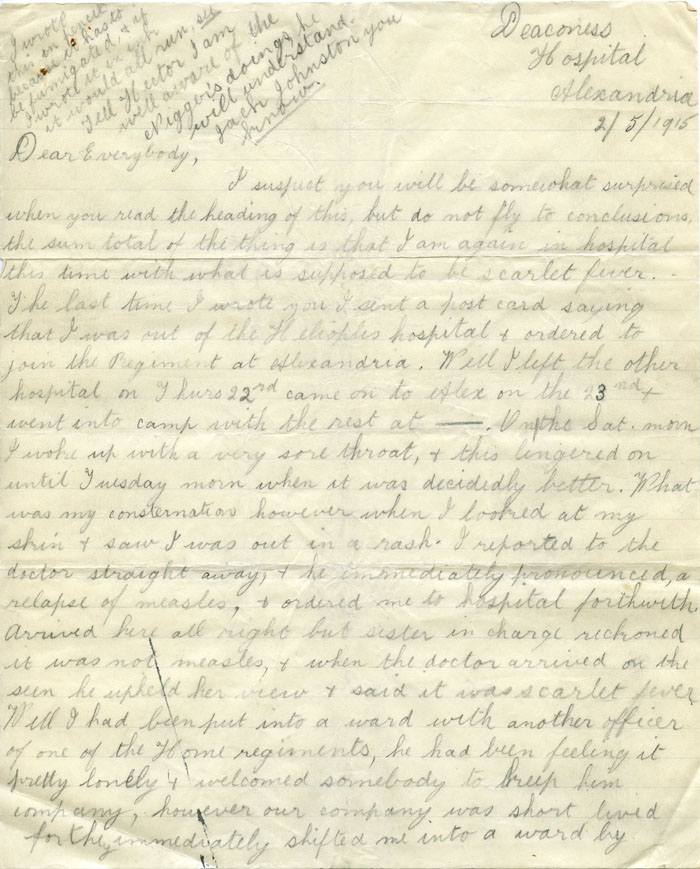 I wrote
this in pencil
because it has to
be fumigated, & if
I wrote it in ink
it would all run, see
Tell Hector I am
well aware of the
Nigger's doings, he
will understand.
Jack Johnston you
know.
Deaconess
Hospital
Alexandria
2/5/1915
Dear Everybody,
I suspect you will be somewhat surprised
when you read the heading of this, but do not fly to conclusions,
the sum total of the thing is that I am again in hospital
this time with what is supposed to be scarlet fever.
The last time I wrote you I sent a post card saying
that I was out of the Heleoples hospital & ordered to
join the Regiment at Alexandria. Well I left the other
hospital on Thurs 22nd came on to Alex on the 23rd &
went into camp with the rest at ——. On the Sat. morn
I woke up with a very sore throat, & this lingered on
until Tuesday morn when it was decidedly better. What
was my consternation however when I looked at my
skin & saw I was out in a rash. I reported to the
doctor straight away, & he immediately pronounced, a
relapse of measles, & ordered me to hospital forthwith.
Arrived here all right but sister in charge reckoned
it was not measles, & when the doctor arrived on the
seen he upheld her view & said it was scarlet fever
Well I had been put into a ward with another officer
of one of the Home regiments, he had been feeling it
pretty lonely & welcomed somebody to keep him
company, however our company was short lived
for they immediately shifted me into a ward by